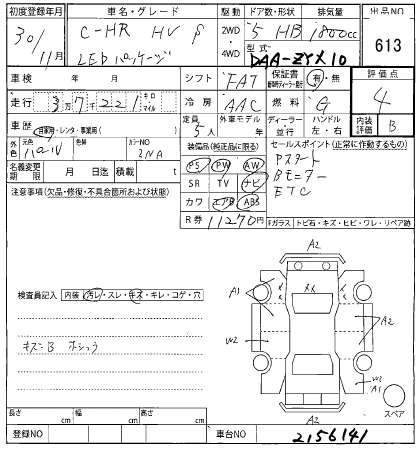 初度登録年月 車名・グレード 駆動 ドア数・形状 排気量 出品NO
30/11月 C-HR HV 2WD・4WD 5 HB 1800cc 613
LEDパッケージ 型式 DAA-ZYX10
車検 年 月 シフト FAT 保証書 有・無 評価点
走行 37221 キロ マイル 冷房 AAC 燃料 G 4
車歴 自家用・レンタ・事業用( ) 定員 5人 外車モデル 年 ディーラー・並行 ハンドル 左・右 内装評価 B
外色 元色 パール 色替 カラーNO 2NA 装備品(純正品に限る) セールスポイント(正常に動作するもの)
名義変更期限 月 日迄 積載 t PS PW AW
Pスタート
注意事項(欠品・修復・不具合箇所および状態) SR TV ナビ
Bモニター
カワ エアB ABS
ETC
R券 11270円 Fガラス トビ石・キズ・ヒビ・ワレ・リペア跡
A2
検査員記入 内装 汚レ・スレ・キズ・キレ・コゲ・穴
A1
A2
W2
キズB
W2
A1
スペア
A2
長さ cm 幅 cm 高さ cm
登録NO 車台NO 2156141